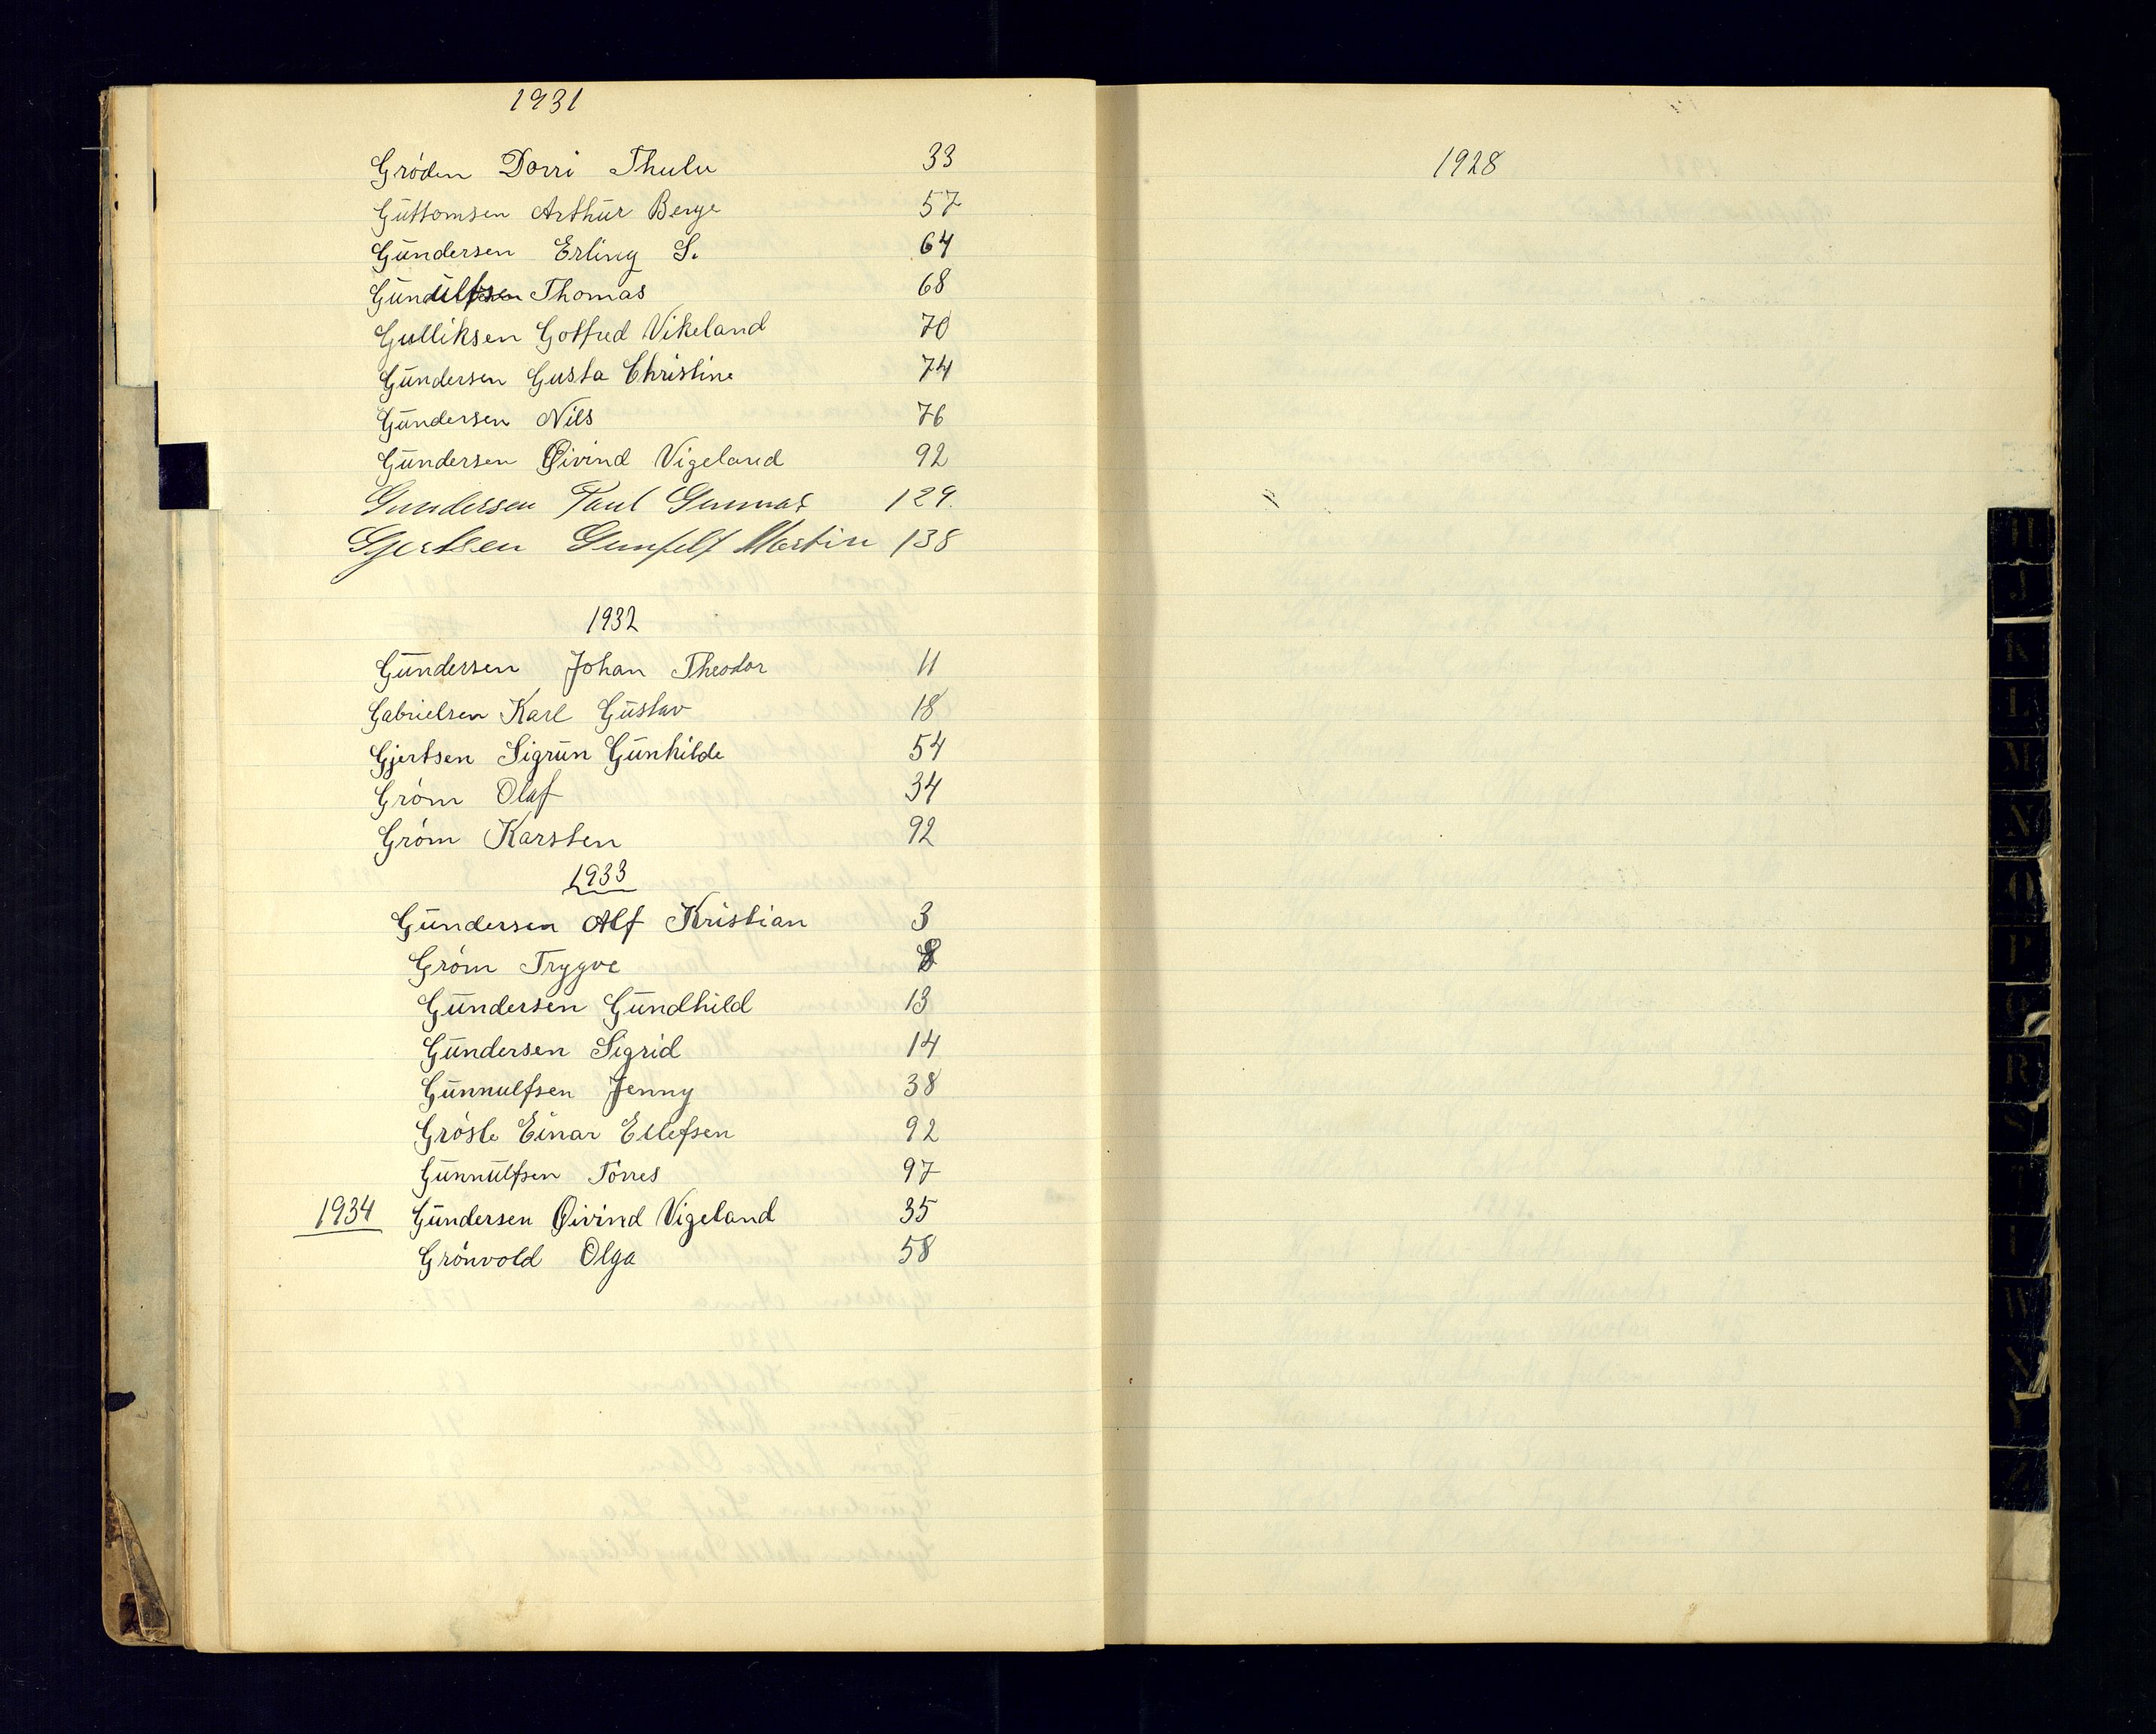 1931
Gróden Dorri Thulu 33
Gūttomsen Arthūr Berge 57
Gūndersen Erling S. 64
Gūndūlfsen Thomas 68
Gulliksen Gotfred Vikeland 70
Gūndersen Gusta Christine 74
Gūndersen Nils 76
Gūndersen Øivind Vigeland 92
Gundersen Paul Gunnar 129.
Gjertsen Gunfelf Martin 138
1932
Gūndersen Johan Theodor 11
Gabrielsen Karl Gūstav 18
Gjertsen Sigrūn Gūnhilde 54
Gróm Olaf 34
Gróm Karsten 92
1933
Gūndersen Alf Kristian 3
Gróm Trygve 8
Gūndersen Gūndhild 13
Gūndersen Sigrid 14
Gūnnulfsen Jenny 38
Grósle Einar Ellefsen 92
Gūnnūlfsen Tórres 97
1934 Gūndersen Øivind Vigeland 35
Grónvold Olga 58
1928
H
J
K
L
M
N
O
P
Q
R